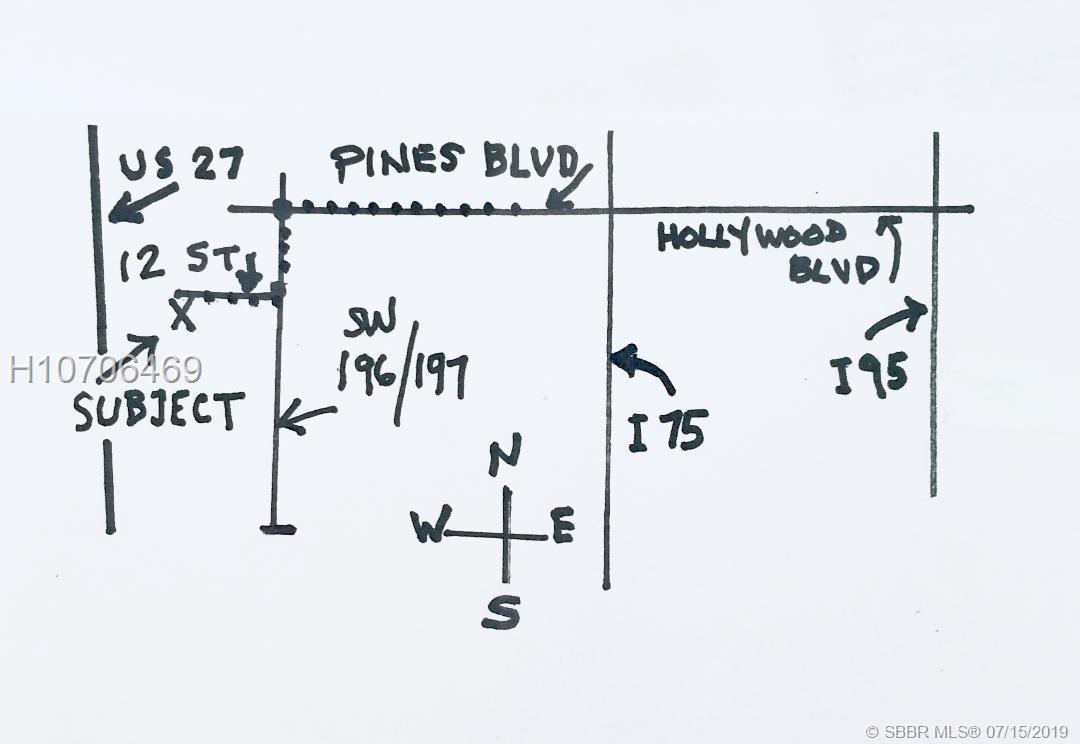 US 27
PINES BLVD
HOLLYWOOD
BLVD
12 ST
X
SW
196/197
I 95
H10706469
SUBJECT
I 75
N
W E
S
© SBBR MLS® 07/15/2019